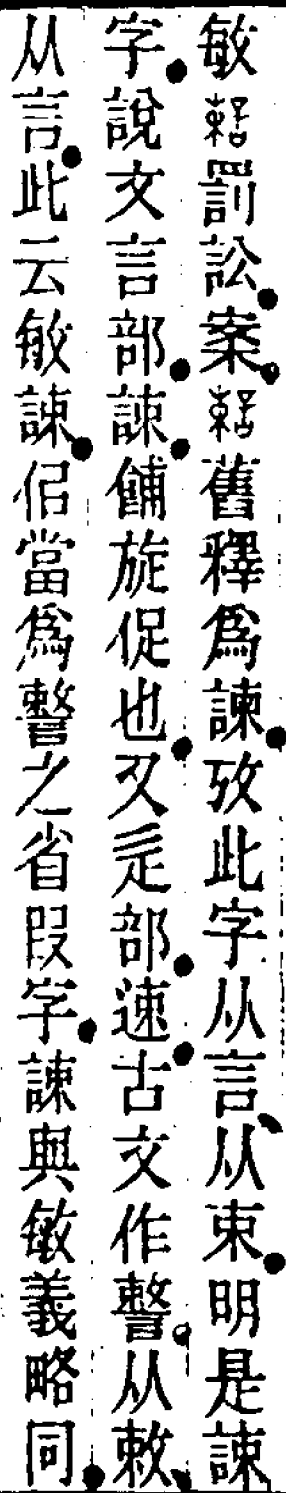 敏罰訟案舊釋爲諫攷此字从言从束明是誎
字說文言部誎餔旋促也又辵部速古文作𧫷从敕
从言此云敏誎佀當爲𧫷之省叚字誎與敏義略同